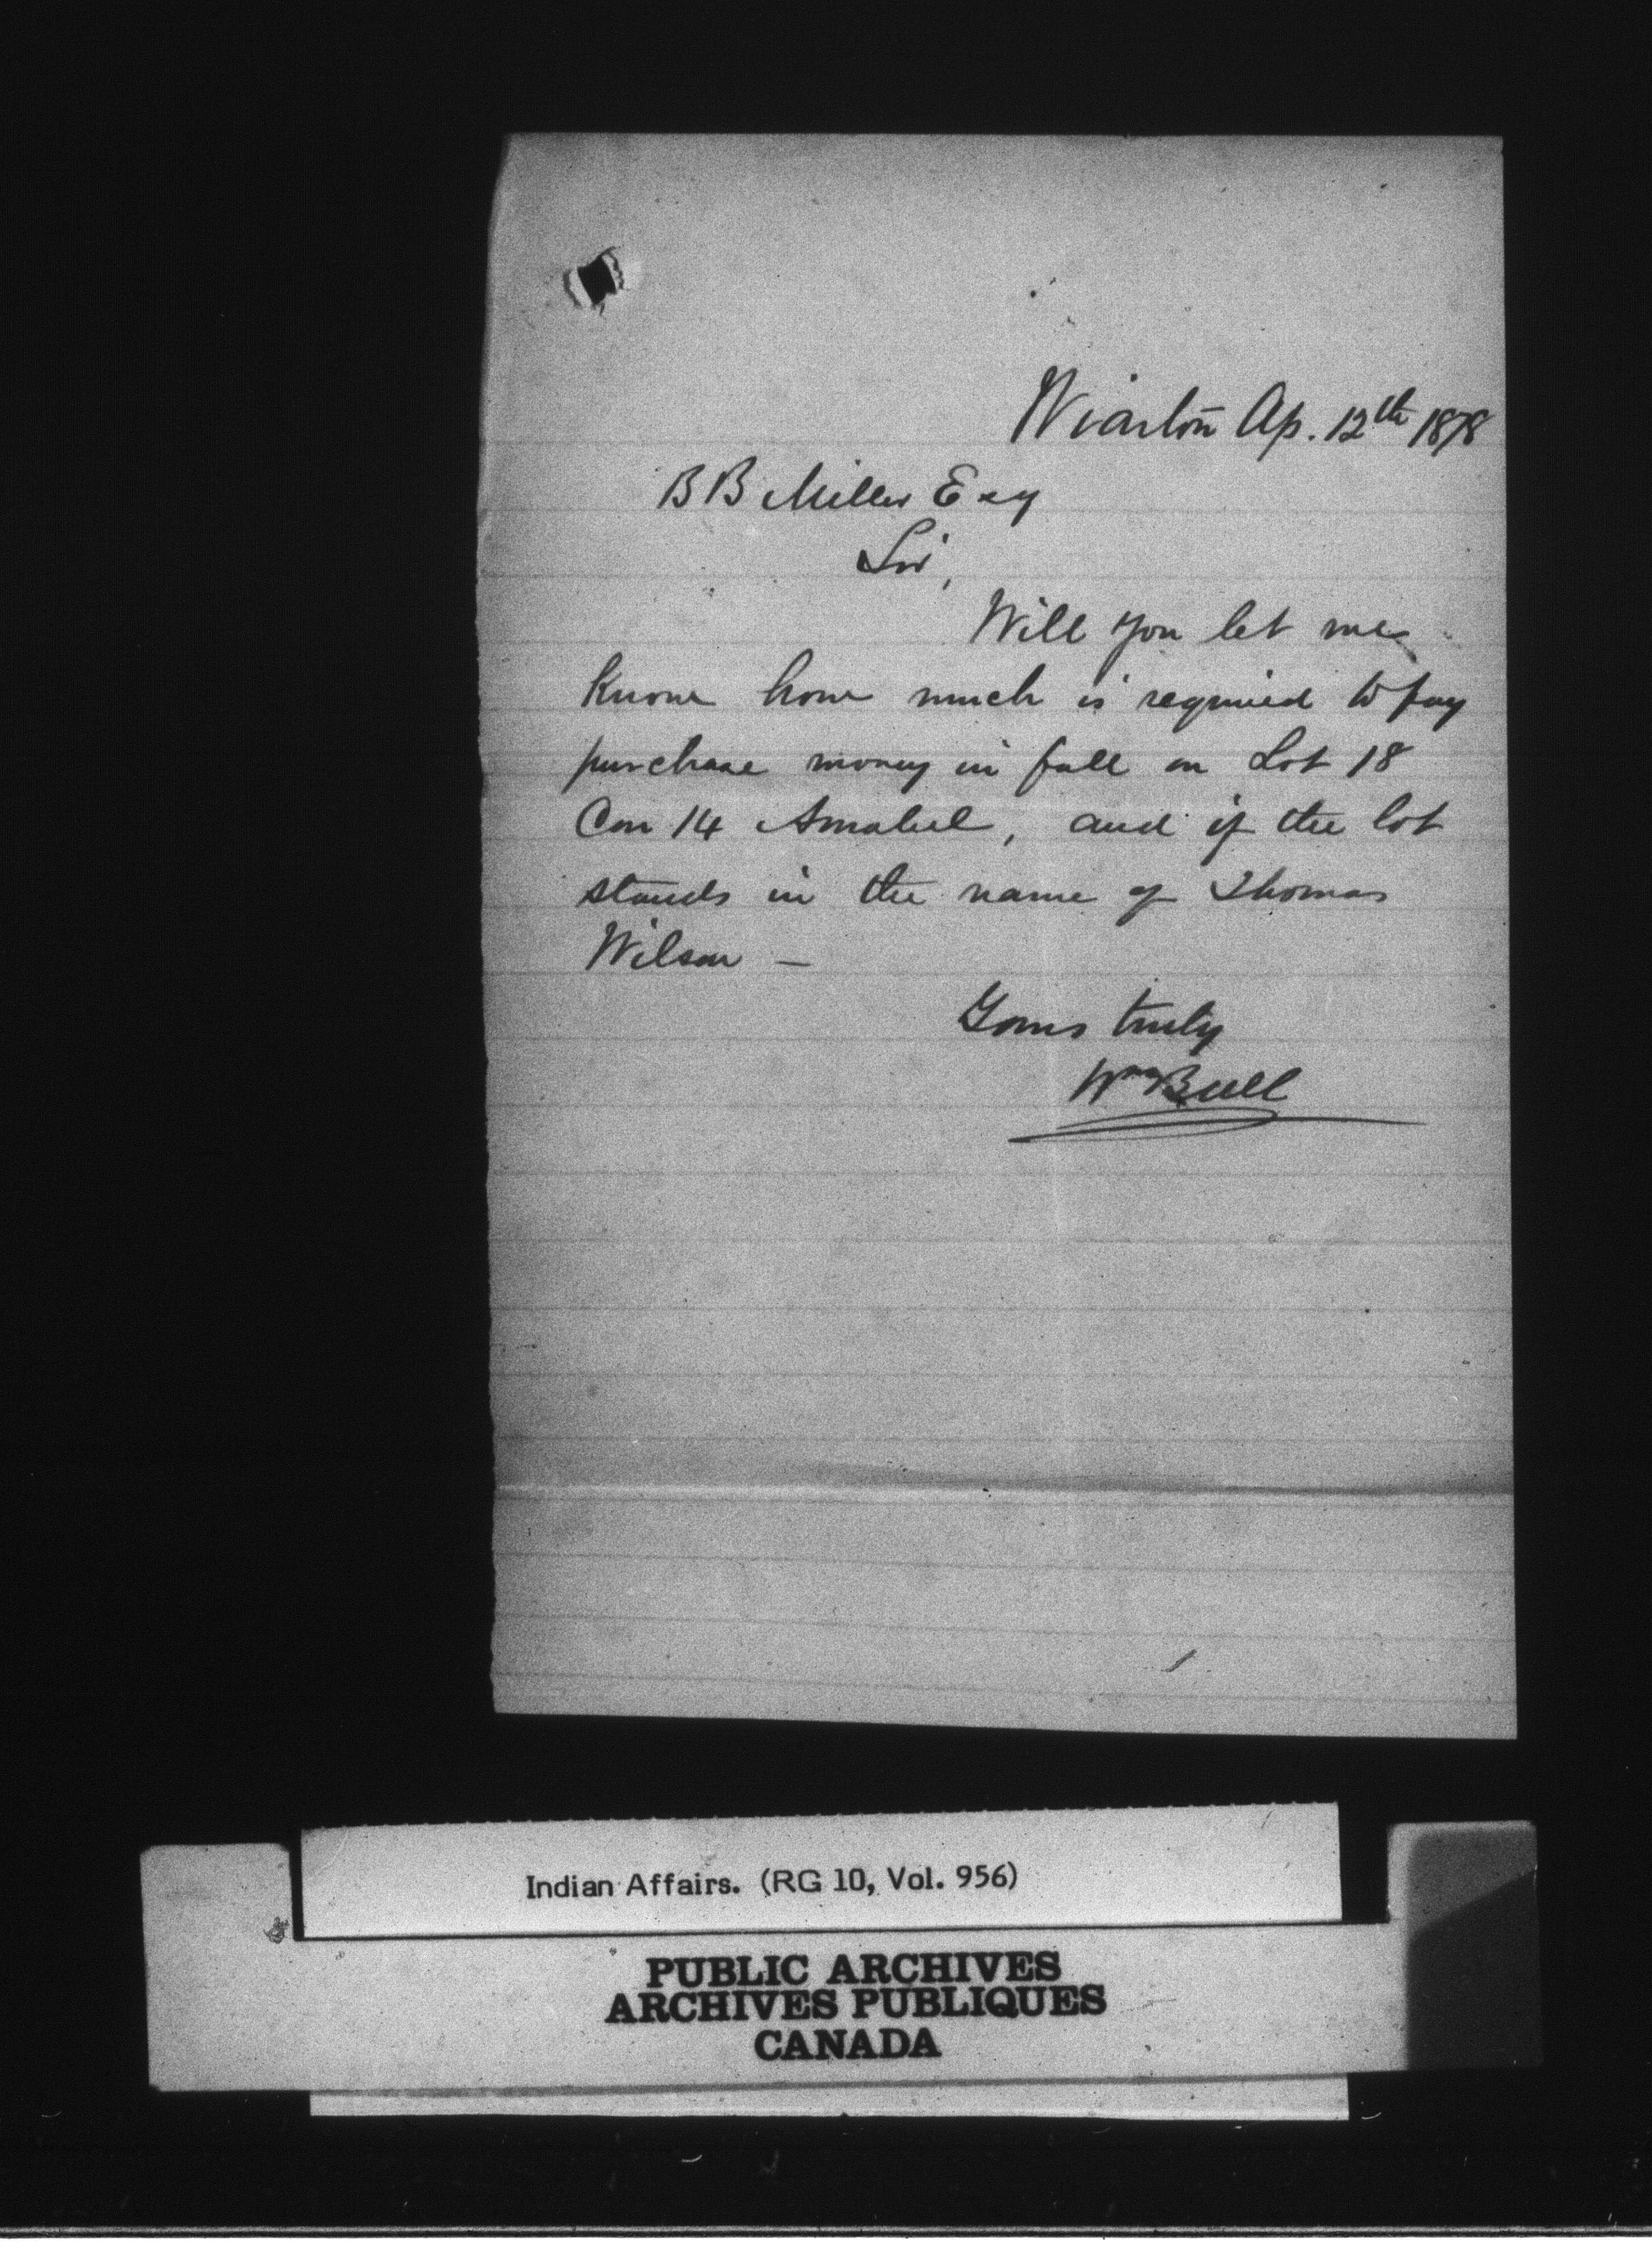 Wiarton Ap. 12th 1878
B B Miller Esq
Sir,
Will you let me
know how much is required to pay
purchase money in full on Lot 18
Con 14 Amabel, and if the lot
stands in the name of Thomas
Wilson —
Yours truly
Wm Bull
Indian Affairs. (RG 10, Vol. 956)
PUBLIC ARCHIVES
ARCHIVES PUBLIQUES
CANADA